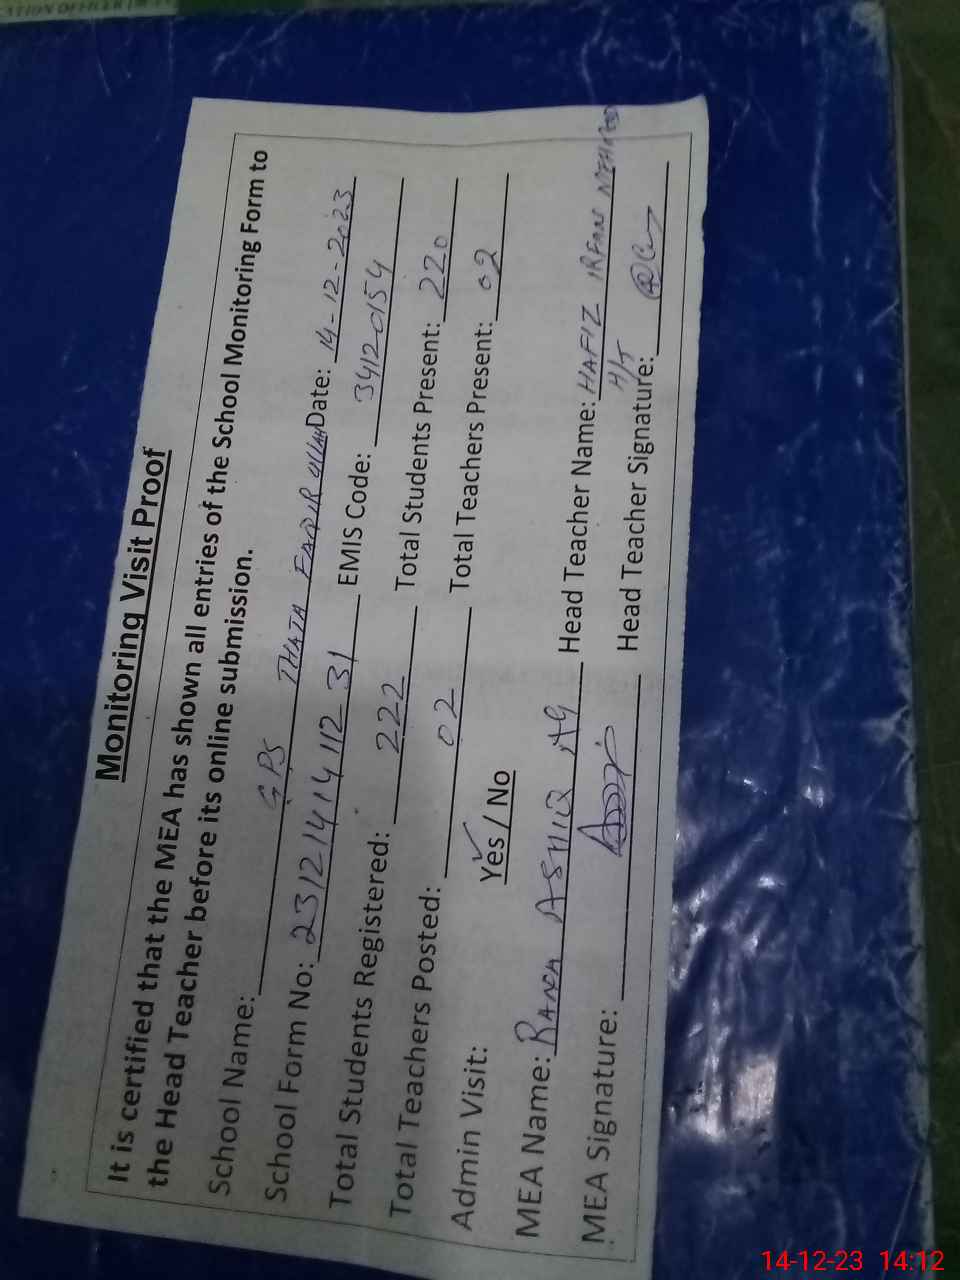 Monitoring Visit Proof
It is certified that the MEA has shown all entries of the School Monitoring Form to
the Head Teacher before its online submission.
School Name: GPS THATA FAQIR ULLAH Date: 14-12-2023
School Form No: 231214141112 31 EMIS Code: 34120154
Total Students Registered: 222 Total Students Present: 220
Total Teachers Posted: 02 Total Teachers Present: 02
Admin Visit: Yes / No
MEA Name: RANA ASHIQ Ali Head Teacher Name: HAFIZ IRFAN MEHMOOD
H/T
MEA Signature: Head Teacher Signature:
14-12-23 14:12